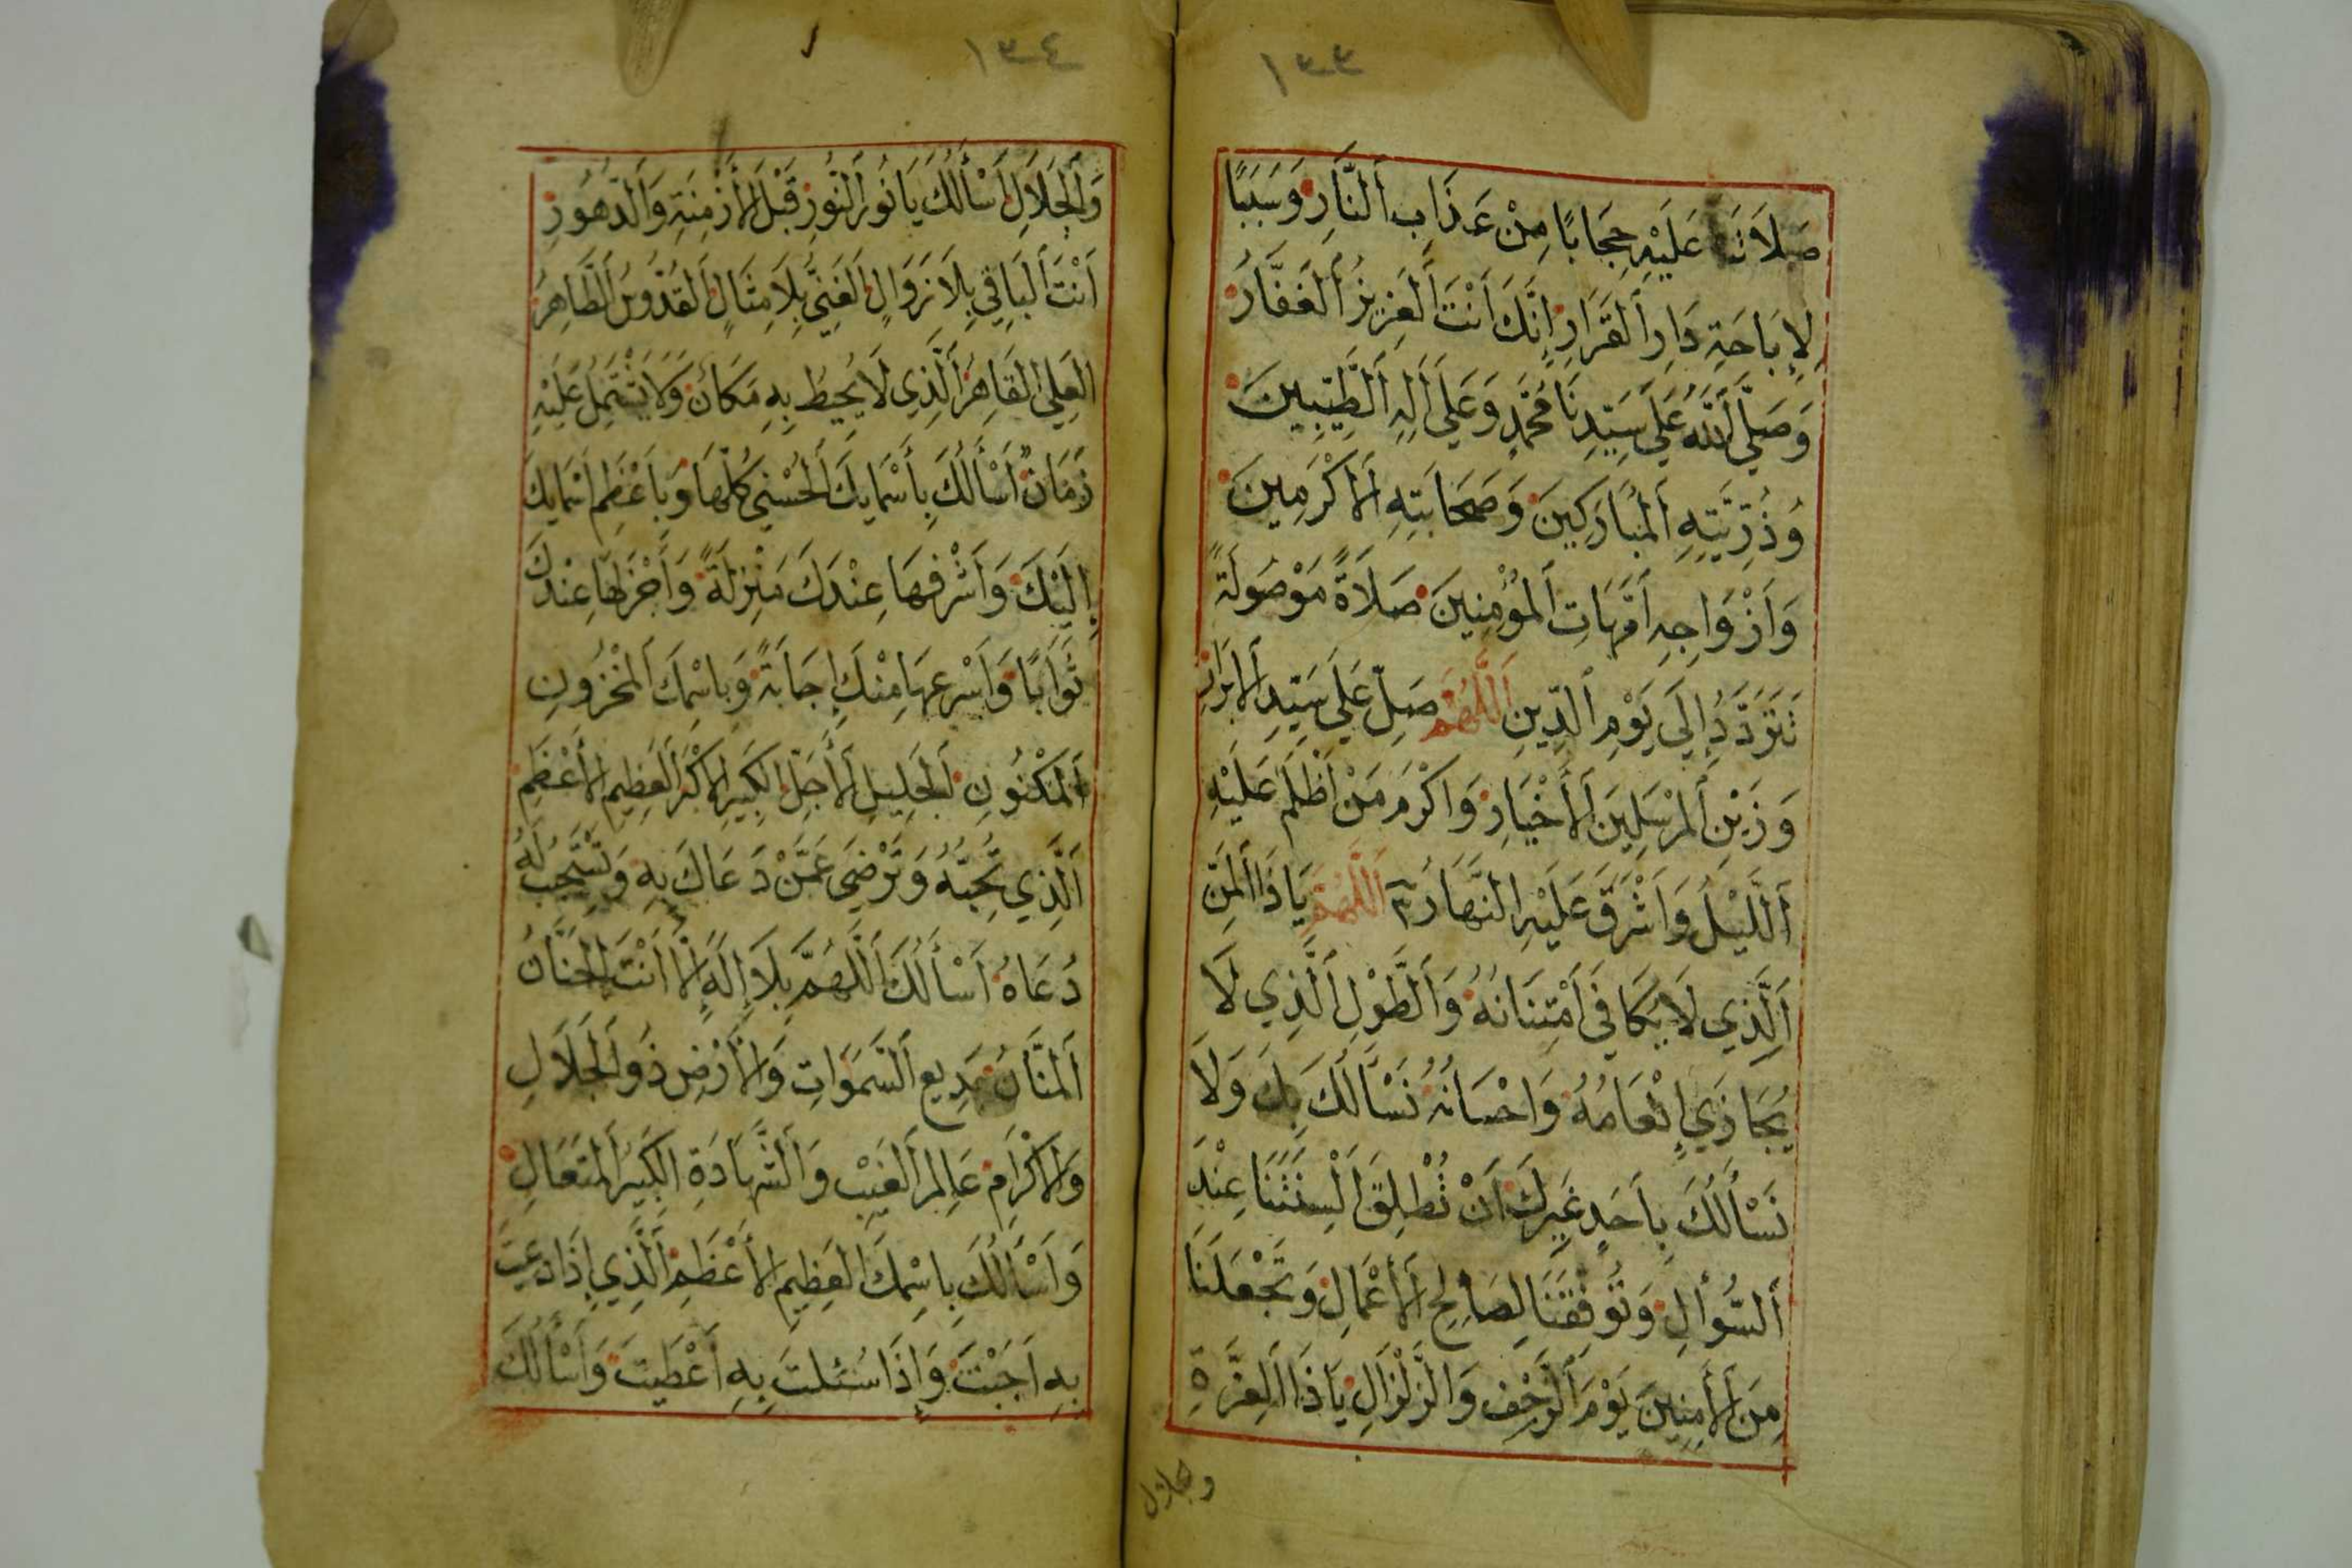 ١٣٣
صَلَاتَنَا عَلَيْهِ حِجَابًا مِنْ عَذَابِ اَلنَّارِ وَسَبَبًا
لِاِبَاحَةِ دَارِ اَلْقَرَارِ اِنَّكَ اَنْتَ اَلْعَزِيزُ اَلْغَفَّارُ
وَصَلَّى اَللَّهُ عَلَى سَيِّدِنَا مُحَمَّدٍ وَعَلَى اَلِهِ اَلطَّيِّبِينَ
وَذُرِّيَّتِهِ اَلْمُبَارَكِينَ وَصَحَابَتِهِ اَلْاَكْرَمِينَ
وَاَزْوَاجِهِ اُمَّهَاتِ اَلْمُؤْمِنِينَ صَلَاةً مَوْصُولَةً
تَتَرَدَّدُ اِلَى يَوْمِ اَلدِّينِ اَللَّهُمَّ صَلِّ عَلَى سَيِّدِ اَلْاَبْرَارِ
وَزَيْنِ اَلْمُرْسَلِينَ اَلْاَخْيَارِ وَاَكْرَمِ مَنْ اَظْلَمَ عَلَيْهِ
اَللَّيْلُ وَاَشْرَقَ عَلَيْهِ النَّهَارُ اَللَّهُمَّ يَاذَا اَلْمَنِّ
اَلَّذِي لَا يُكَافِى اَمْتِنَانُهُ وَاَلطَّوْلِ اَلَّذِي لَا
يُجَاذَي اِنْعَامُهُ وَاِحْسَانُهُ نَسْاَلُكَ بِكَ وَلَا
نَسْاَلُكَ بِاَحَدٍ غَيْرِكَ اَنْ تُطْلِقَ اَلْسِنَتَنَا عِنْدَ
اَلسُّؤَالِ وَتُوَفِّقَنَا لِصَالِحِ اَلْاَعْمَالِ وَتَجْعَلَنَا
مِنَ اَلْاَمِنِينَ يَوْمَ اَلرَّجْفِ وَالزَّلْزَالِ يَاذَا اَلْعِزَّةِ
وجلال
١٣٤
وَاَلْجَلَالِ اَسْاَلُكَ يَا نُورَ اَلنُّورِ قَبْلَ اَلْاَزْمِنَةِ وَاَلدُّهُورِ
اَنْتَ اَلْبَاقِي بِلَا زَوَالٍ اَلْغَنِيُّ بِلَا مِثَالٍ اَلْقُدُّوسُ اَلطَّاهِرُ
اَلْعَلِيُّ اَلْقَاهِرُ اَلَّذِي لَا يُحِيطُ بِهِ مَكَانٌ وَلَا يَشْتَمِلُ عَلَيْهِ
زَمَانٌ اَسْاَلُكَ بِاَسْمَايِكَ اَلْحُسْنَى كُلِّهَا وَبِاَعْظَمِ اَسْمَايِكَ
اِلَيْكَ وَاَشْرَفِهَا عِنْدَكَ مَنْزِلَةً وَاَجْزَلِهَا عِنْدَكَ
ثَوَابًا وَاَسْرَعِهَا مِنْكَ اِجَابَةً وَبِاسْمِكَ اَلْمَخْزُونِ
اَلْمَكْنُونِ اَلْجَلِيلِ اَلْاَجَلِّ اَلْكَبِيرِ اَلْاَكْبَرِ اَلْعَظِيمِ اَلْاَعْظَمِ
اَلَّذِي تُحِبُّهُ وَتَرْضَى عَمَّنْ دَعَاكَ بِهِ وَتَسْتَجِيبُ لَهُ
دُعَاهُ اَسْاَلُكَ اَللَّهُمَّ بِلَا اِلَهَ اِلَّا اَنْتَ اَلْحَنَّانُ
اَلْمَنَّانُ بَدِيعُ اَلسَّمَوَاتِ وَالْاَرْضِ ذُو اَلْجَلَالِ
وَالْاِكْرَامِ عَالِمُ اَلْغَيْبِ وَالشَّهَادَةِ اَلْكَبِيرُ اَلْمُتَعَالِ
وَاَسْاَلُكَ بِاسْمِكَ اَلْعَظِيمِ اَلْاَعْظَمِ اَلَّذِي اِذَا دُعِيتَ
بِهِ اَجَبْتَ وَاِذَا سُئِلْتَ بِهِ اَعْطَيْتَ وَاَسْاَلُكَ